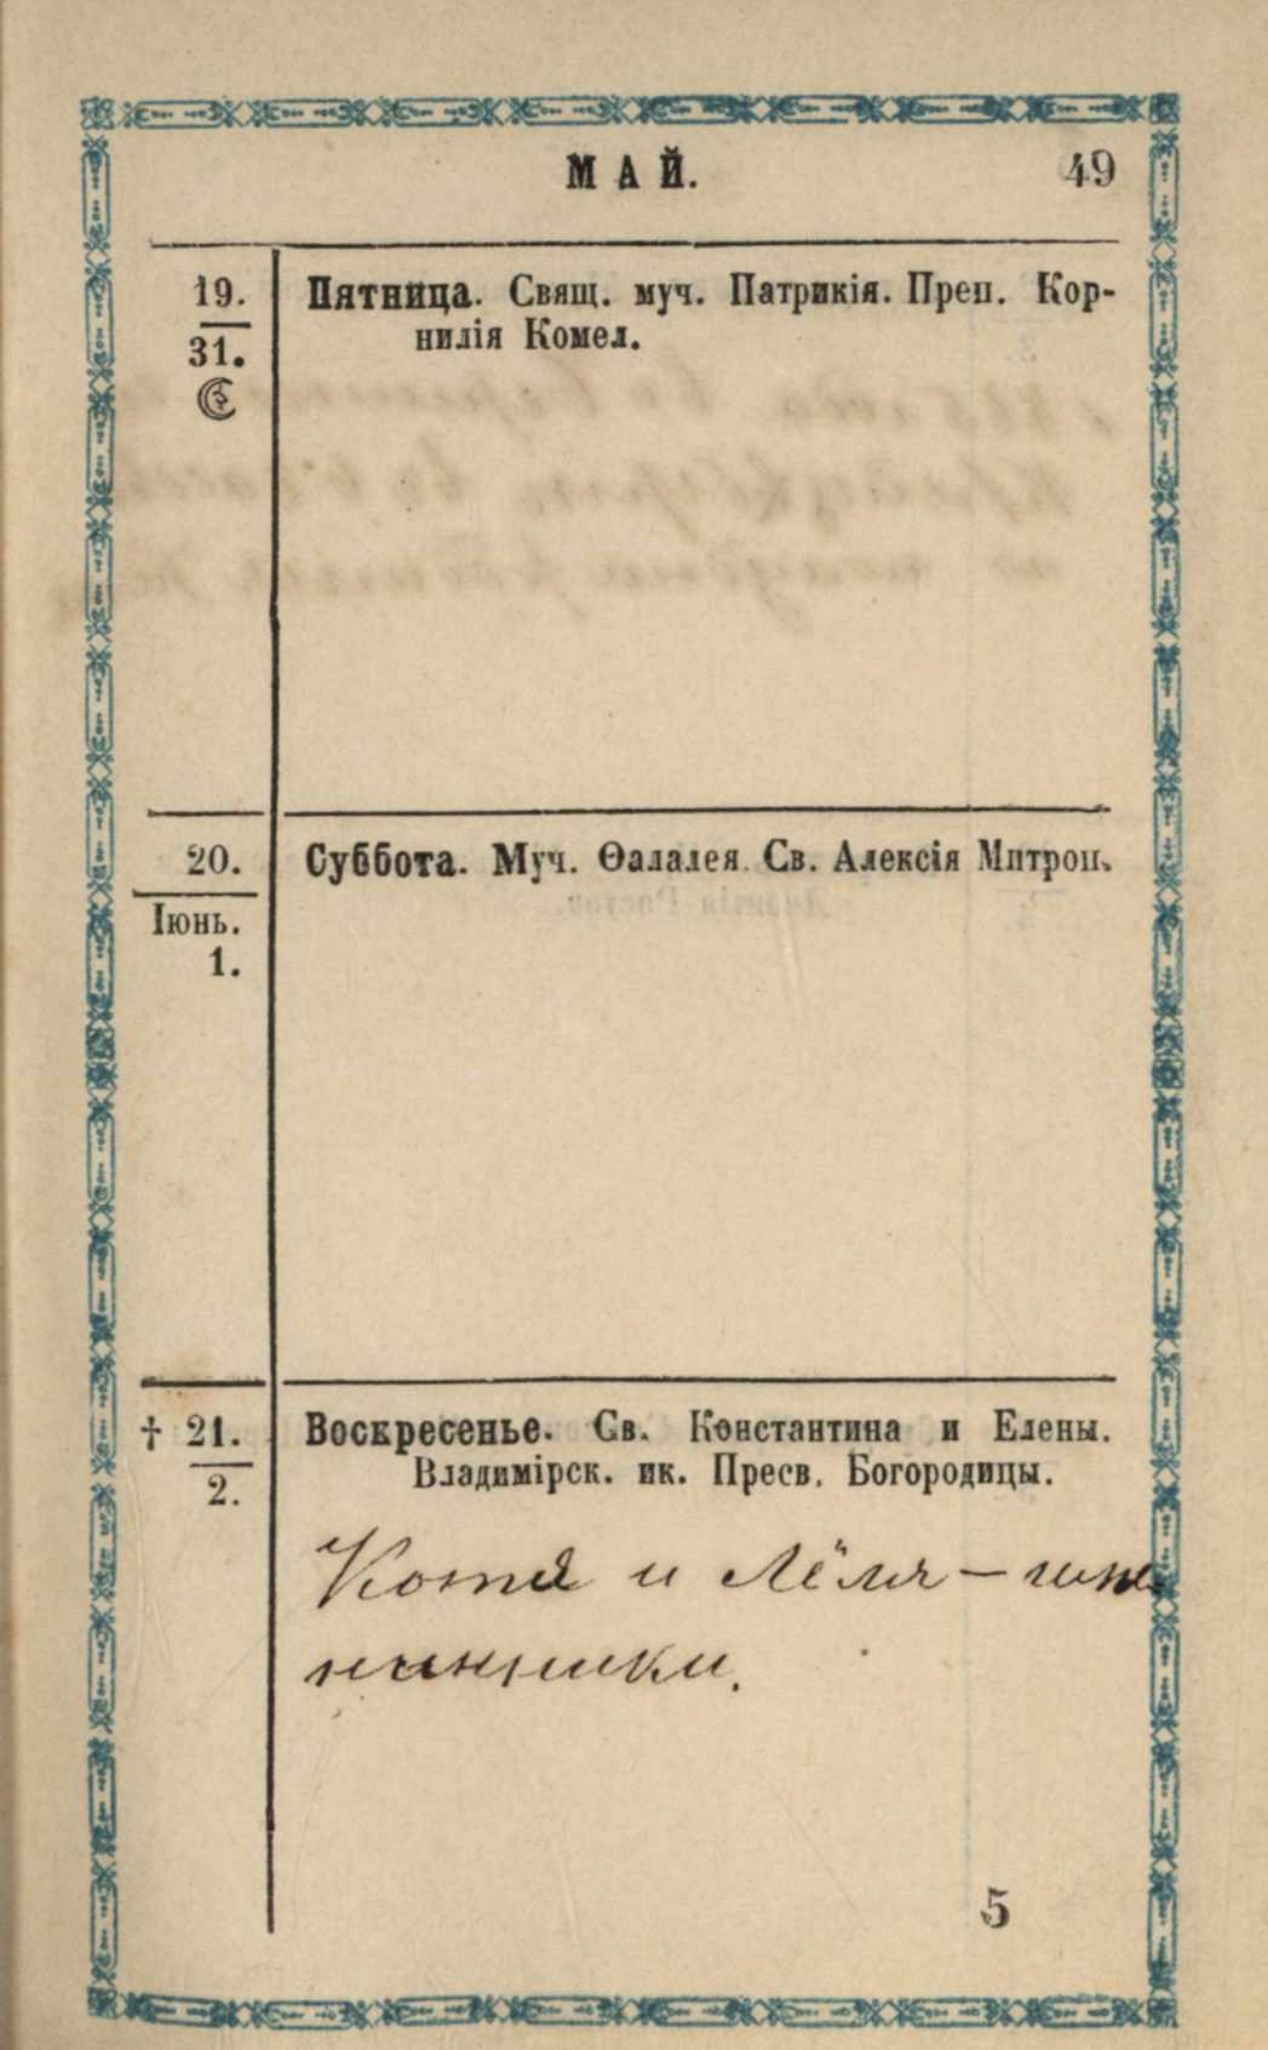 МАЙ. 49
19.
31.
Пятница. Свящ. муч. Патрикія. Преп. Кор-
нилія Комел.
20.
Іюнь.
1.
Суббота. Муч. Ѳалалея. Св. Алексія Митроп.
† 21.
2.
Воскресенье. Св. Константина и Елены.
Владимірск. ик. Пресв. Богородицы.
Котя и Лёля – име
нинники.
5